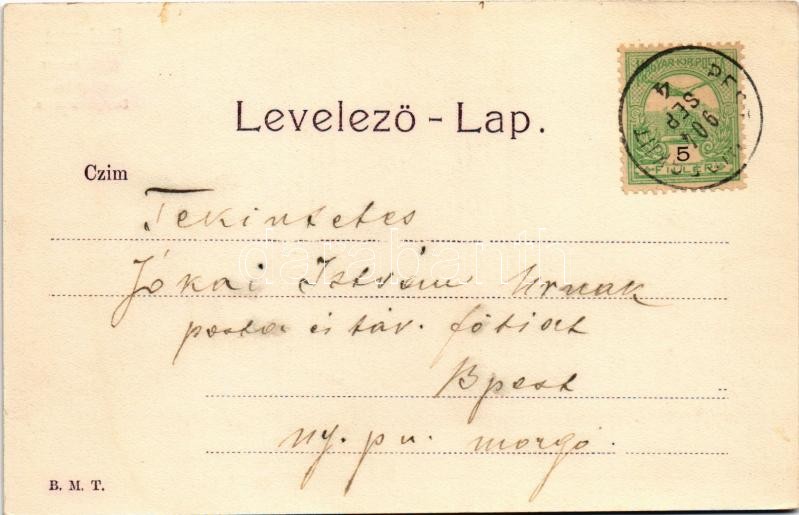 Levelező - Lap.
MAGYAR KIR. POSTA
904
SEP
4
5
FILLÉR
Czim
Tekintetes
Jókai István Urnak
posta és táv. főtiszt
Bpest
ny. pu.
B. M. T.
darabanth